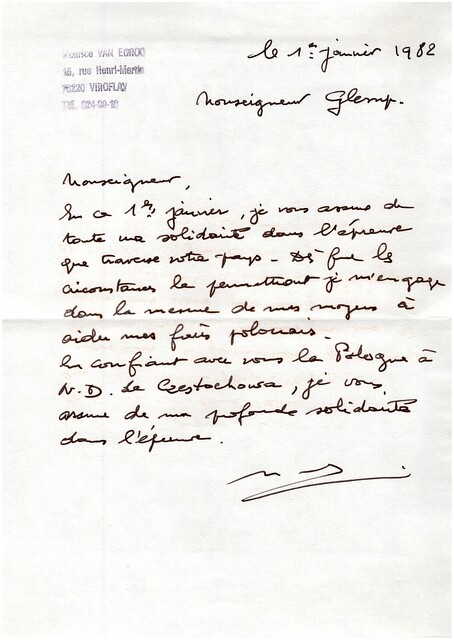 Maurice VAN EGROO
15, rue Henri-Martin
78220 VIROFLAY
Tél. 024-99-16
le 1er janvier 1982
Monseigneur Glemp.
Monseigneur,
En ce 1er janvier, je vous assure de
toute ma solidarité dans l'épreuve
que traverse votre pays - Dès que les
circonstances le permettront je m'engage
dans la mesure de mes moyens à
aider mes frères polonais.
En confiant avec vous la Pologne à
N.D. de Częstochowa, je vous
assure de ma profonde solidarité
dans l'épreuve.